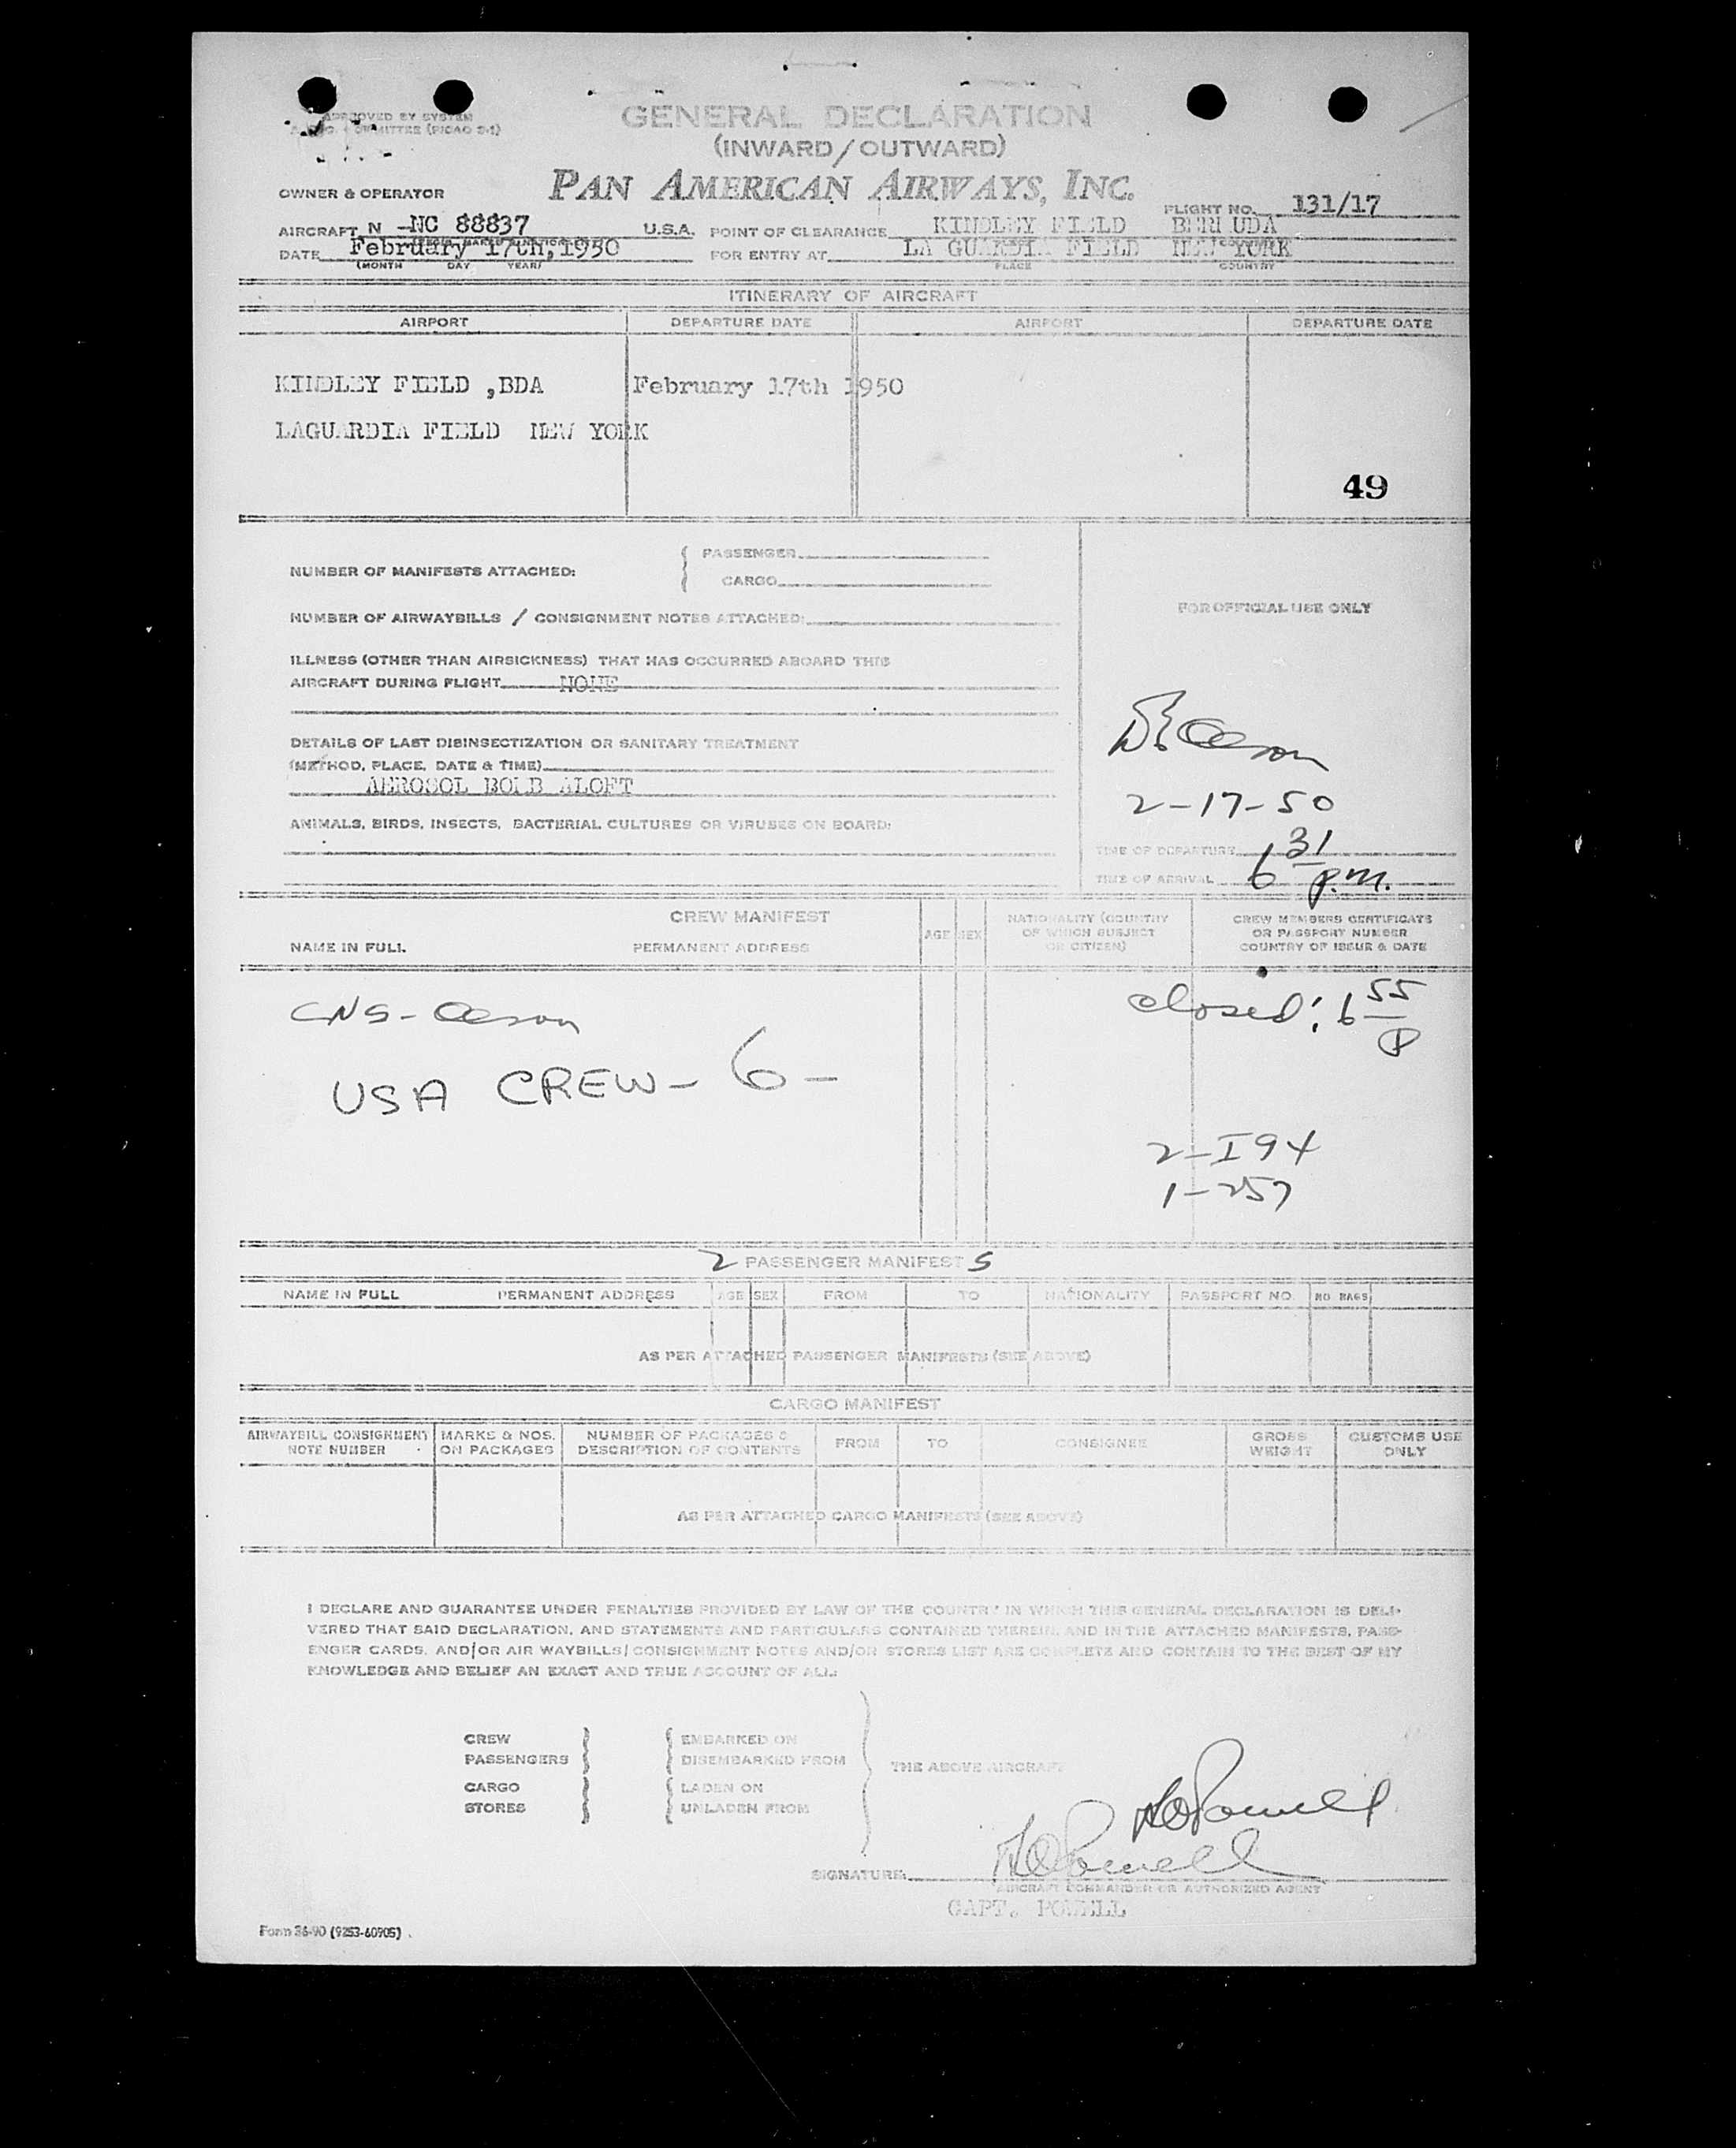 APPROVED BY SYSTEM
COMMITTEE (PICAO 2-1)
GENERAL DECLARATION
(INWARD/OUTWARD)
OWNER & OPERATOR
PAN AMERICAN AIRWAYS, INC.
FLIGHT NO. 131/17
AIRCRAFT N -NC 88837 U.S.A. POINT OF CLEARANCE KINDLEY FIELD BERMUDA
DATE February 17th,1950 FOR ENTRY AT LA GUARDIA FIELD NEW YORK
(MONTH DAY YEAR) PLACE COUNTRY
ITINERARY OF AIRCRAFT
AIRPORT DEPARTURE DATE AIRPORT DEPARTURE DATE
KINDLEY FIELD ,BDA February 17th 1950
LAGUARDIA FIELD NEW YORK
49
NUMBER OF MANIFESTS ATTACHED: { PASSENGER
CARGO
FOR OFFICIAL USE ONLY
NUMBER OF AIRWAYBILLS / CONSIGNMENT NOTES ATTACHED:
ILLNESS (OTHER THAN AIRSICKNESS) THAT HAS OCCURRED ABOARD THIS
AIRCRAFT DURING FLIGHT NONE
DETAILS OF LAST DISINSECTIZATION OR SANITARY TREATMENT
(METHOD, PLACE, DATE & TIME)
AEROSOL BOMB ALOFT
2-17-50
ANIMALS, BIRDS, INSECTS, BACTERIAL CULTURES OR VIRUSES ON BOARD:
TIME OF DEPARTURE
TIME OF ARRIVAL 6 31 p.m.
CREW MANIFEST
NAME IN FULL PERMANENT ADDRESS AGE SEX NATIONALITY (COUNTRY OF WHICH SUBJECT OR CITIZEN) CREW MEMBERS CERTIFICATE OR PASSPORT NUMBER COUNTRY OF ISSUE & DATE
closed: 6 55 P
USA CREW- 6 -
2-I94
1-257
2 PASSENGER MANIFEST S
NAME IN FULL PERMANENT ADDRESS AGE SEX FROM TO NATIONALITY PASSPORT NO. NO. BAGS
AS PER ATTACHED PASSENGER MANIFESTS (SEE ABOVE)
CARGO MANIFEST
AIRWAYBILL CONSIGNMENT NOTE NUMBER MARKS & NOS. ON PACKAGES NUMBER OF PACKAGES & DESCRIPTION OF CONTENTS FROM TO CONSIGNEE GROSS WEIGHT CUSTOMS USE ONLY
AS PER ATTACHED CARGO MANIFESTS (SEE ABOVE)
I DECLARE AND GUARANTEE UNDER PENALTIES PROVIDED BY LAW OF THE COUNTRY IN WHICH THIS GENERAL DECLARATION IS DELI-
VERED THAT SAID DECLARATION, AND STATEMENTS AND PARTICULARS CONTAINED THEREIN, AND IN THE ATTACHED MANIFESTS, PASS-
ENGER CARDS, AND/OR AIR WAYBILLS/CONSIGNMENT NOTES AND/OR STORES LIST ARE COMPLETE AND CONTAIN TO THE BEST OF MY
KNOWLEDGE AND BELIEF AN EXACT AND TRUE ACCOUNT OF ALL:
CREW EMBARKED ON
PASSENGERS DISEMBARKED FROM
THE ABOVE AIRCRAFT
CARGO LADEN ON
STORES UNLADEN FROM
Powell
SIGNATURE: Powell
AIRCRAFT COMMANDER OR AUTHORIZED AGENT
CAPT. POWELL
Form 36-90 (9253-60905)